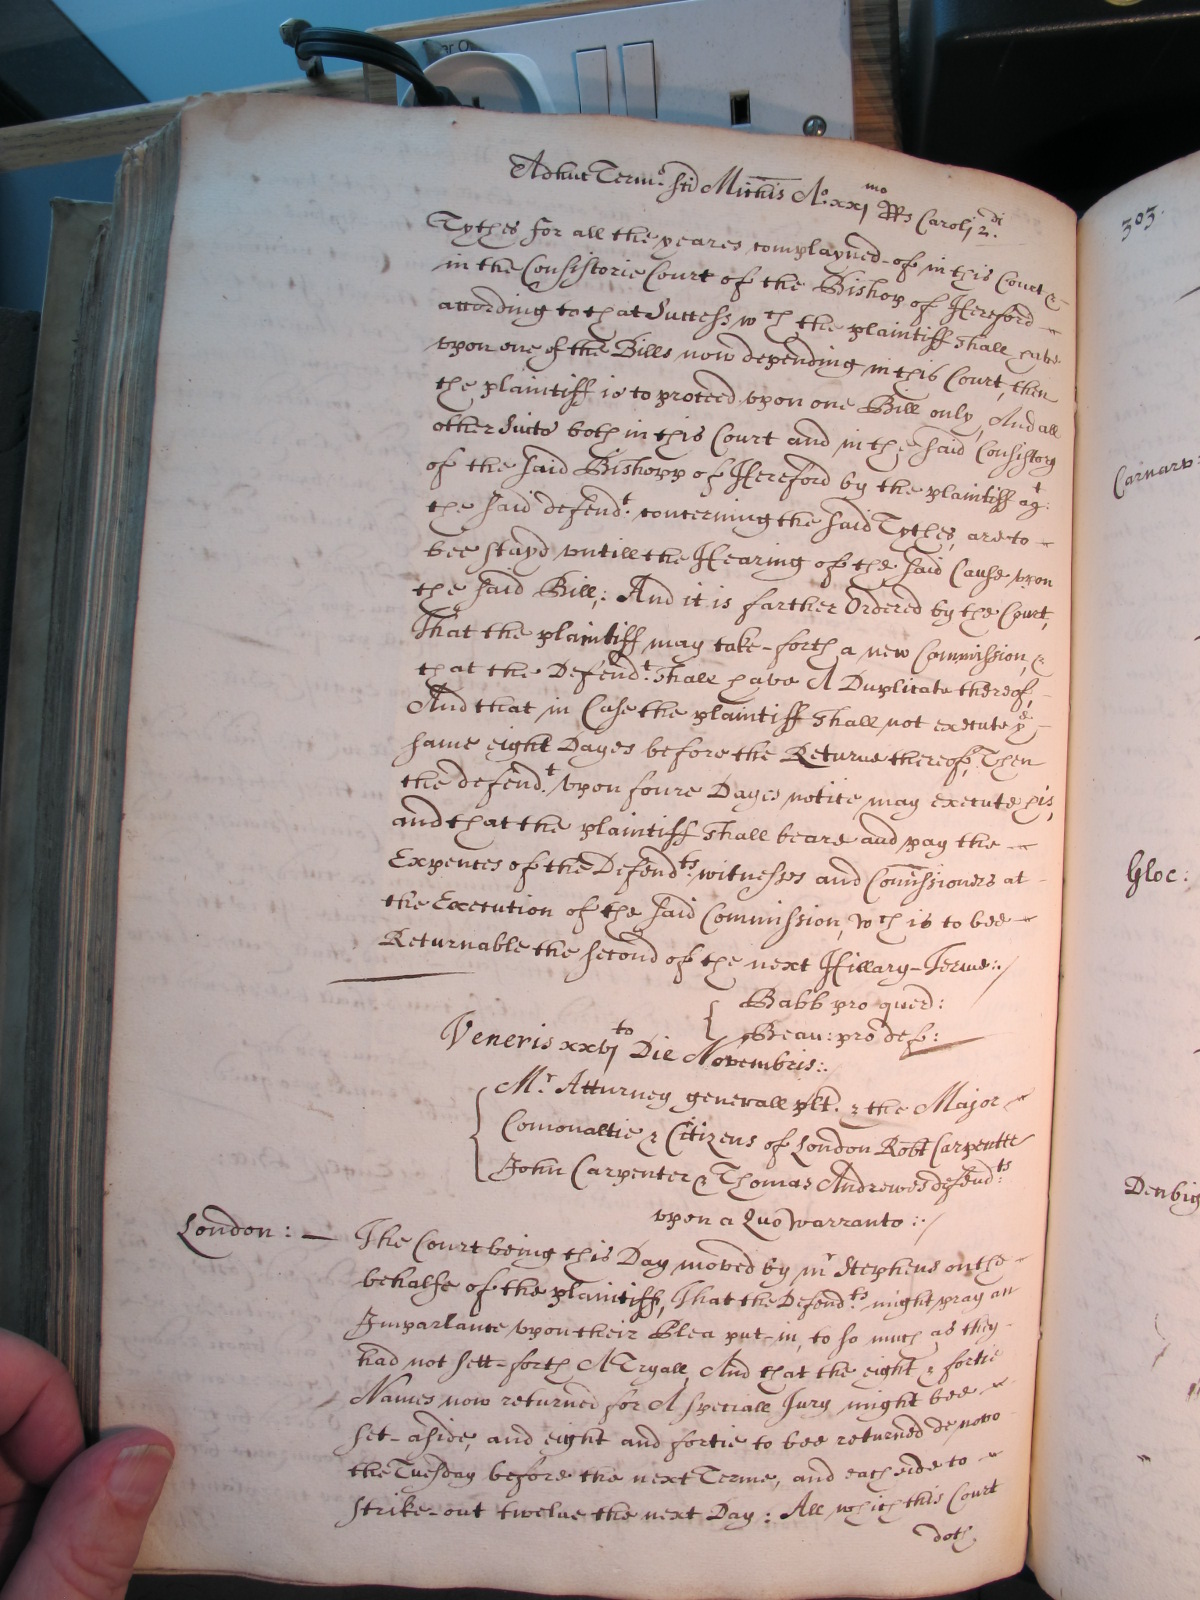 Adhuc Termo: sci Michis Ao: xxj mo RRs Caroli 2.di
Tythes for all the yeares complayned-of in this Court &
in the Consistorie Court of the Bishop of Hereford
according to that Success wch the plaintiff shall have
vpon one of the Bills now depending in this Court, then
the plaintiff is to proceed vpon one Bill only, And all
other Suits both in this Court and in the said Consistory
of the said Bishopp of Hereford by the plaintiff agt:
the said defendt: concerning the said Tythes, are to
bee stayd vntill the Hearing of the said Cause vpon
the said Bill,: And it is farther Ordered by the Court,
That the plaintiff may take-forth a new Commission, &
that the Defendt: shall have A Duplicate thereof,
And that in Case the plaintiff shall not execute ye
same eight Dayes before the Returne thereof, Then
the defendt: vpon foure Dayes notice may execute his,
and that the plaintiff shall beare and pay the
Expences of the Defendts: witnesses and Comissioners at
the Execution of the said Commission, wch is to bee
Returnable the second of the next Hillary-Terme:./
Babb pro quer:
Beau: pro def:
Veneris xxvj to Die Novembris:.
Mr Atturney generall plt. & the Major
Comonaltie & Citizens of London Robt Carpenter
John Carpenter & Thomas Andrewes defendts:
vpon a Quo Warranto :./
London: The Court being this Day moved by mr Stephens on the
behalfe of the plaintiff, That the Defendts: might pray an
Imparlance vpon their Plea put-in, to so much as they
had not sett-forth A Tryall, And that the eight & fortie
Names now returned for A speciall Jury might bee
set-aside, and eight and fortie to bee returned de novo
the Tuesday before the next Terme, and each side to
strike-out twelve the next Day: All which this Court
doth
303.
Carnarv:
Gloc:
Denbig